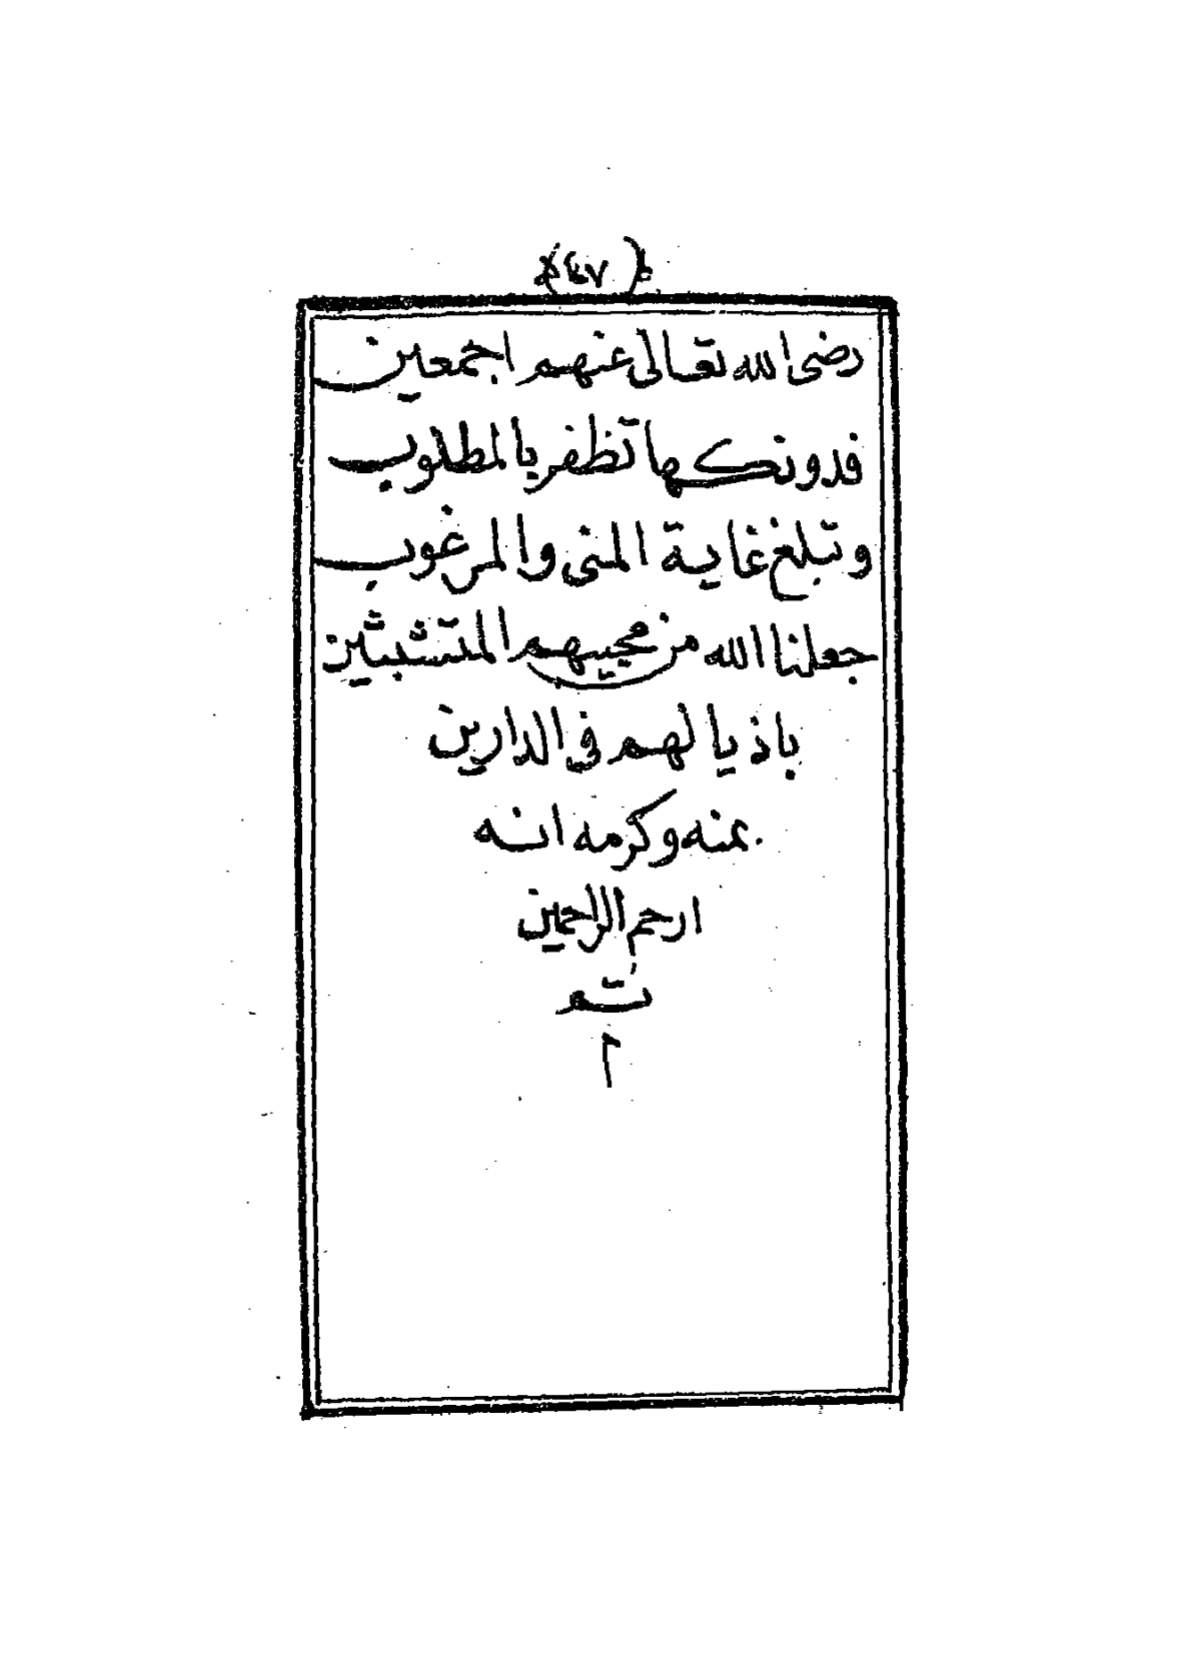 (٤٧)
رضى الله تعالى عنهم اجمعين
فدونكها تظفر بالمطلوب
وتبلغ غاية المنى والمرغوب
جعلنا الله من محبيهم المتشبثين
باذيالهم فى الدارين
بمنه وكرمه انه
ارحم الراحمين
تم
م